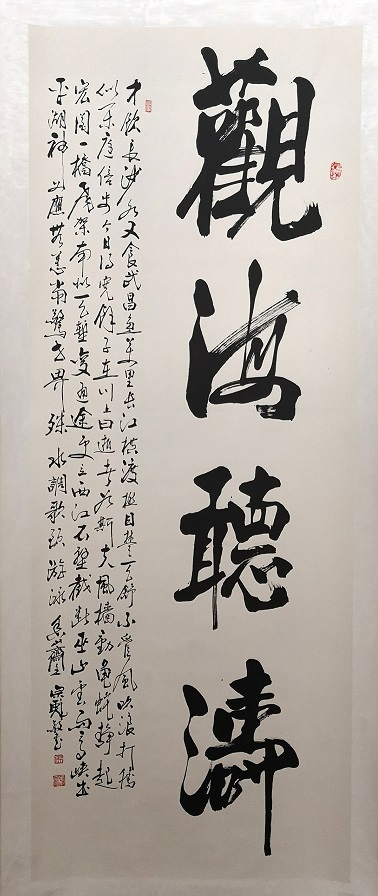 觀海聽濤
才飲長沙水又食武昌魚萬里長江橫渡極目楚天舒不管風吹浪打勝
似閒庭信步今日得寬餘子在川上曰逝者如斯夫風檣動龜蛇靜起
宏圖一橋飛架南北天塹變通途更立西江石壁截斷巫山雲雨高峽出
平湖神女應無恙當驚世界殊 水調歌頭 游泳